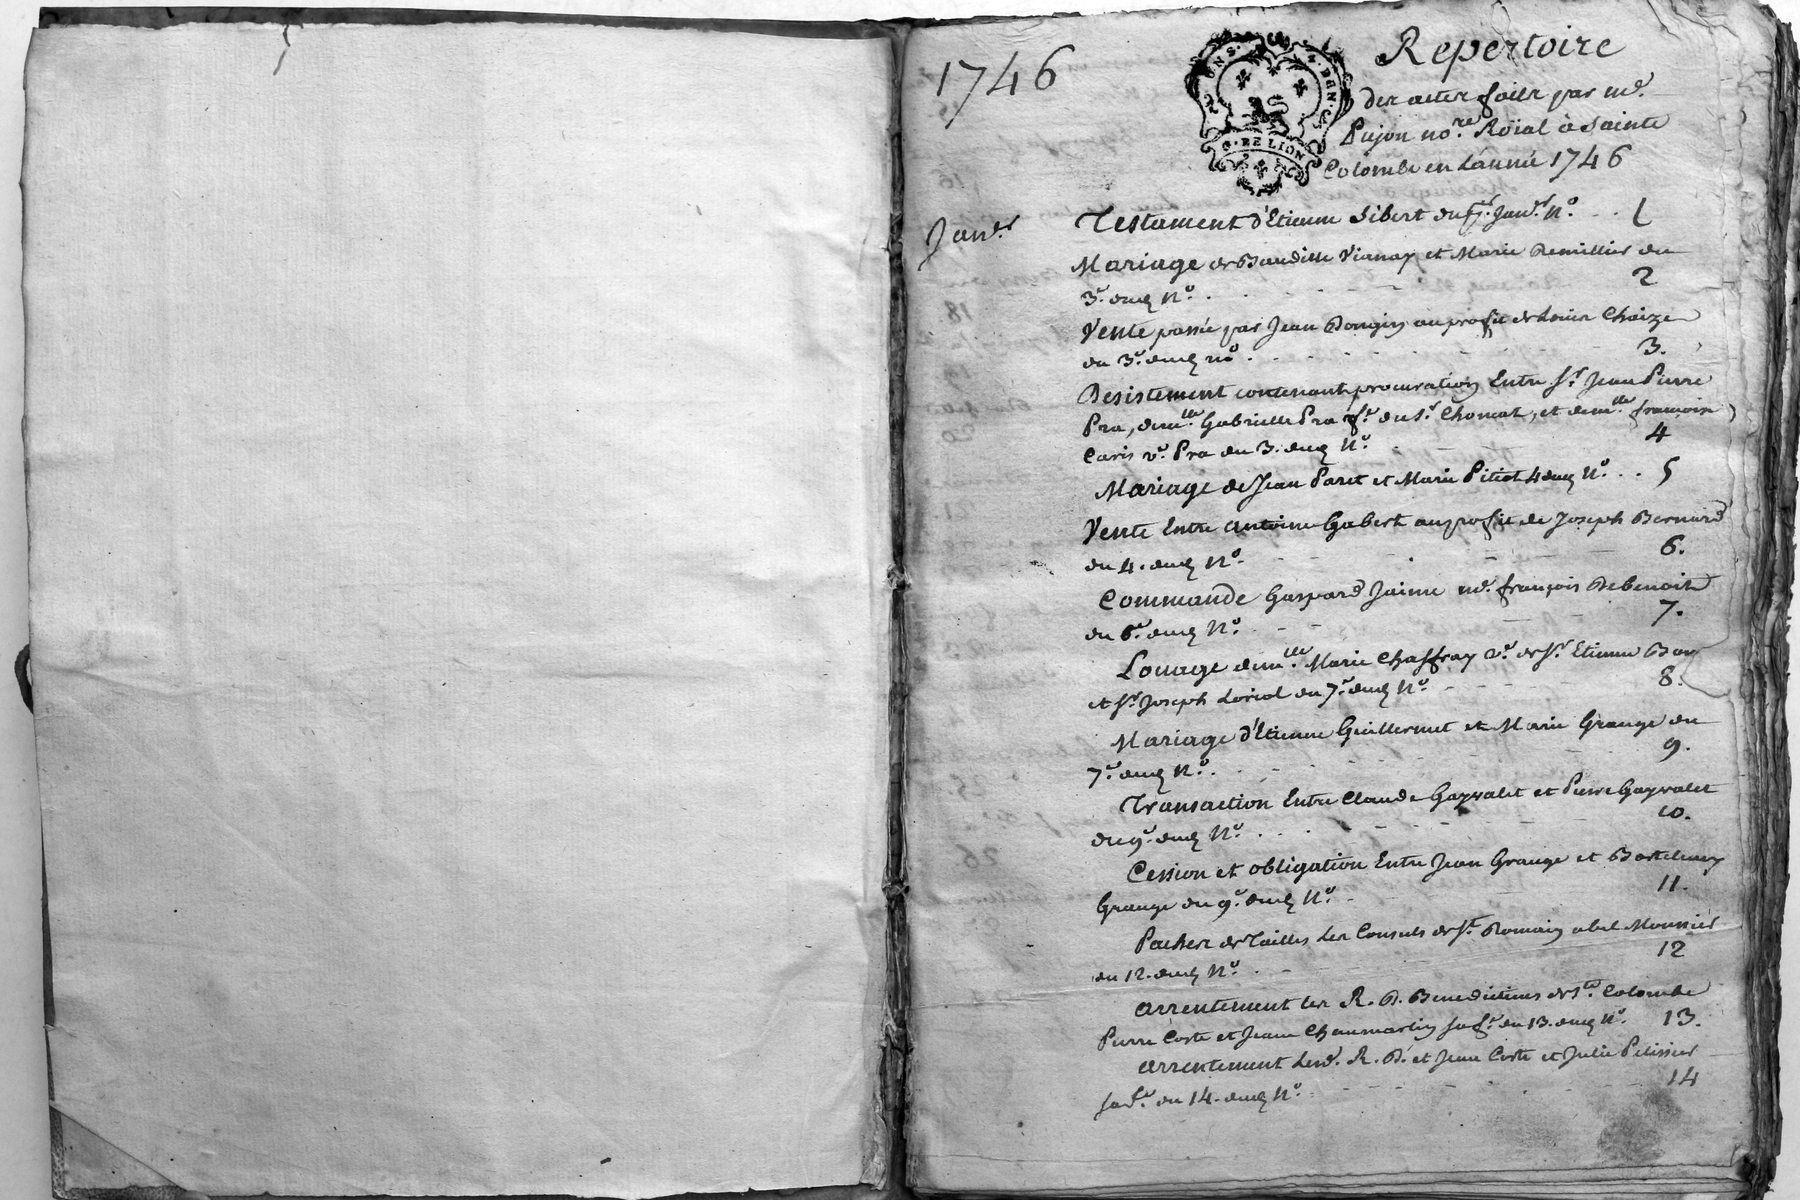 1746
G. DE LION
Repertoire
des actes faits par me.
Pujon nore. Roïal à Sainte
Colombe en Lannée 1746
Janer
Testament d'Etienne Sibert du Janer. No. 1
Mariage de Baudille Viannay et Marie Remillier du
3e. dud No. 2
Vente passée par Jean Dongin au profit de Louis Chaize
du 3e. dud no. 3.
Desistement contenant procuration Entre Sr. Jean Pierre
Pra, demlle. Gabrielle Pra fe. du Sr. Chomat, et demlle. françoise
Caris ve. Pra du 3. dud No. 4
Mariage de Jean Paret et Marie Pitiot 4 dud No. 5
Vente Entre Antoine Gabert au profit de Joseph Bernard
du 4. dud No. 6.
Commande Gaspard Jaime françois Debenoit
du 6e. dud No. 7.
Louage demlle. Marie Chaffray ve. de Sr. Etienne
et Sr. Joseph Loriol du 7e. dud No. 8.
Mariage d'Etienne Guillermet et Marie Grange du
7e. dud No. 9.
Transaction Entre Claude Gayvalet et Pierre Gayvalet
du 9e. dud No. 10.
Cession et obligation Entre Jean Grange et Bartelemy
Grange du 9e. dud No. 11.
de Tailles Les Consuls de St. Romain abel Mounier
du 12. dud No. 12
arrentement les R. D. Benedictines de Ste. Colombe
Pierre Coste et Jeane Chaumartin sa fe. du 13. dud No. 13.
arrentement Lesd. R. D. et Jean Coste et Julie Pelissier
sa fe. du 14. dud No. 14